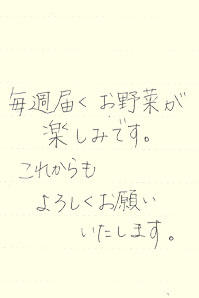 毎週届くお野菜が
楽しみです。
これからも
よろしくお願い
いたします。